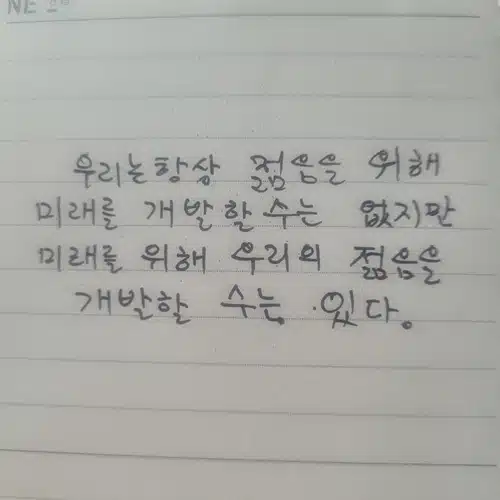 NE
우리는 항상 젊음을 위해
미래를 개발할 수는 없지만
미래를 위해 우리의 젊음을
개발할 수는 있다.